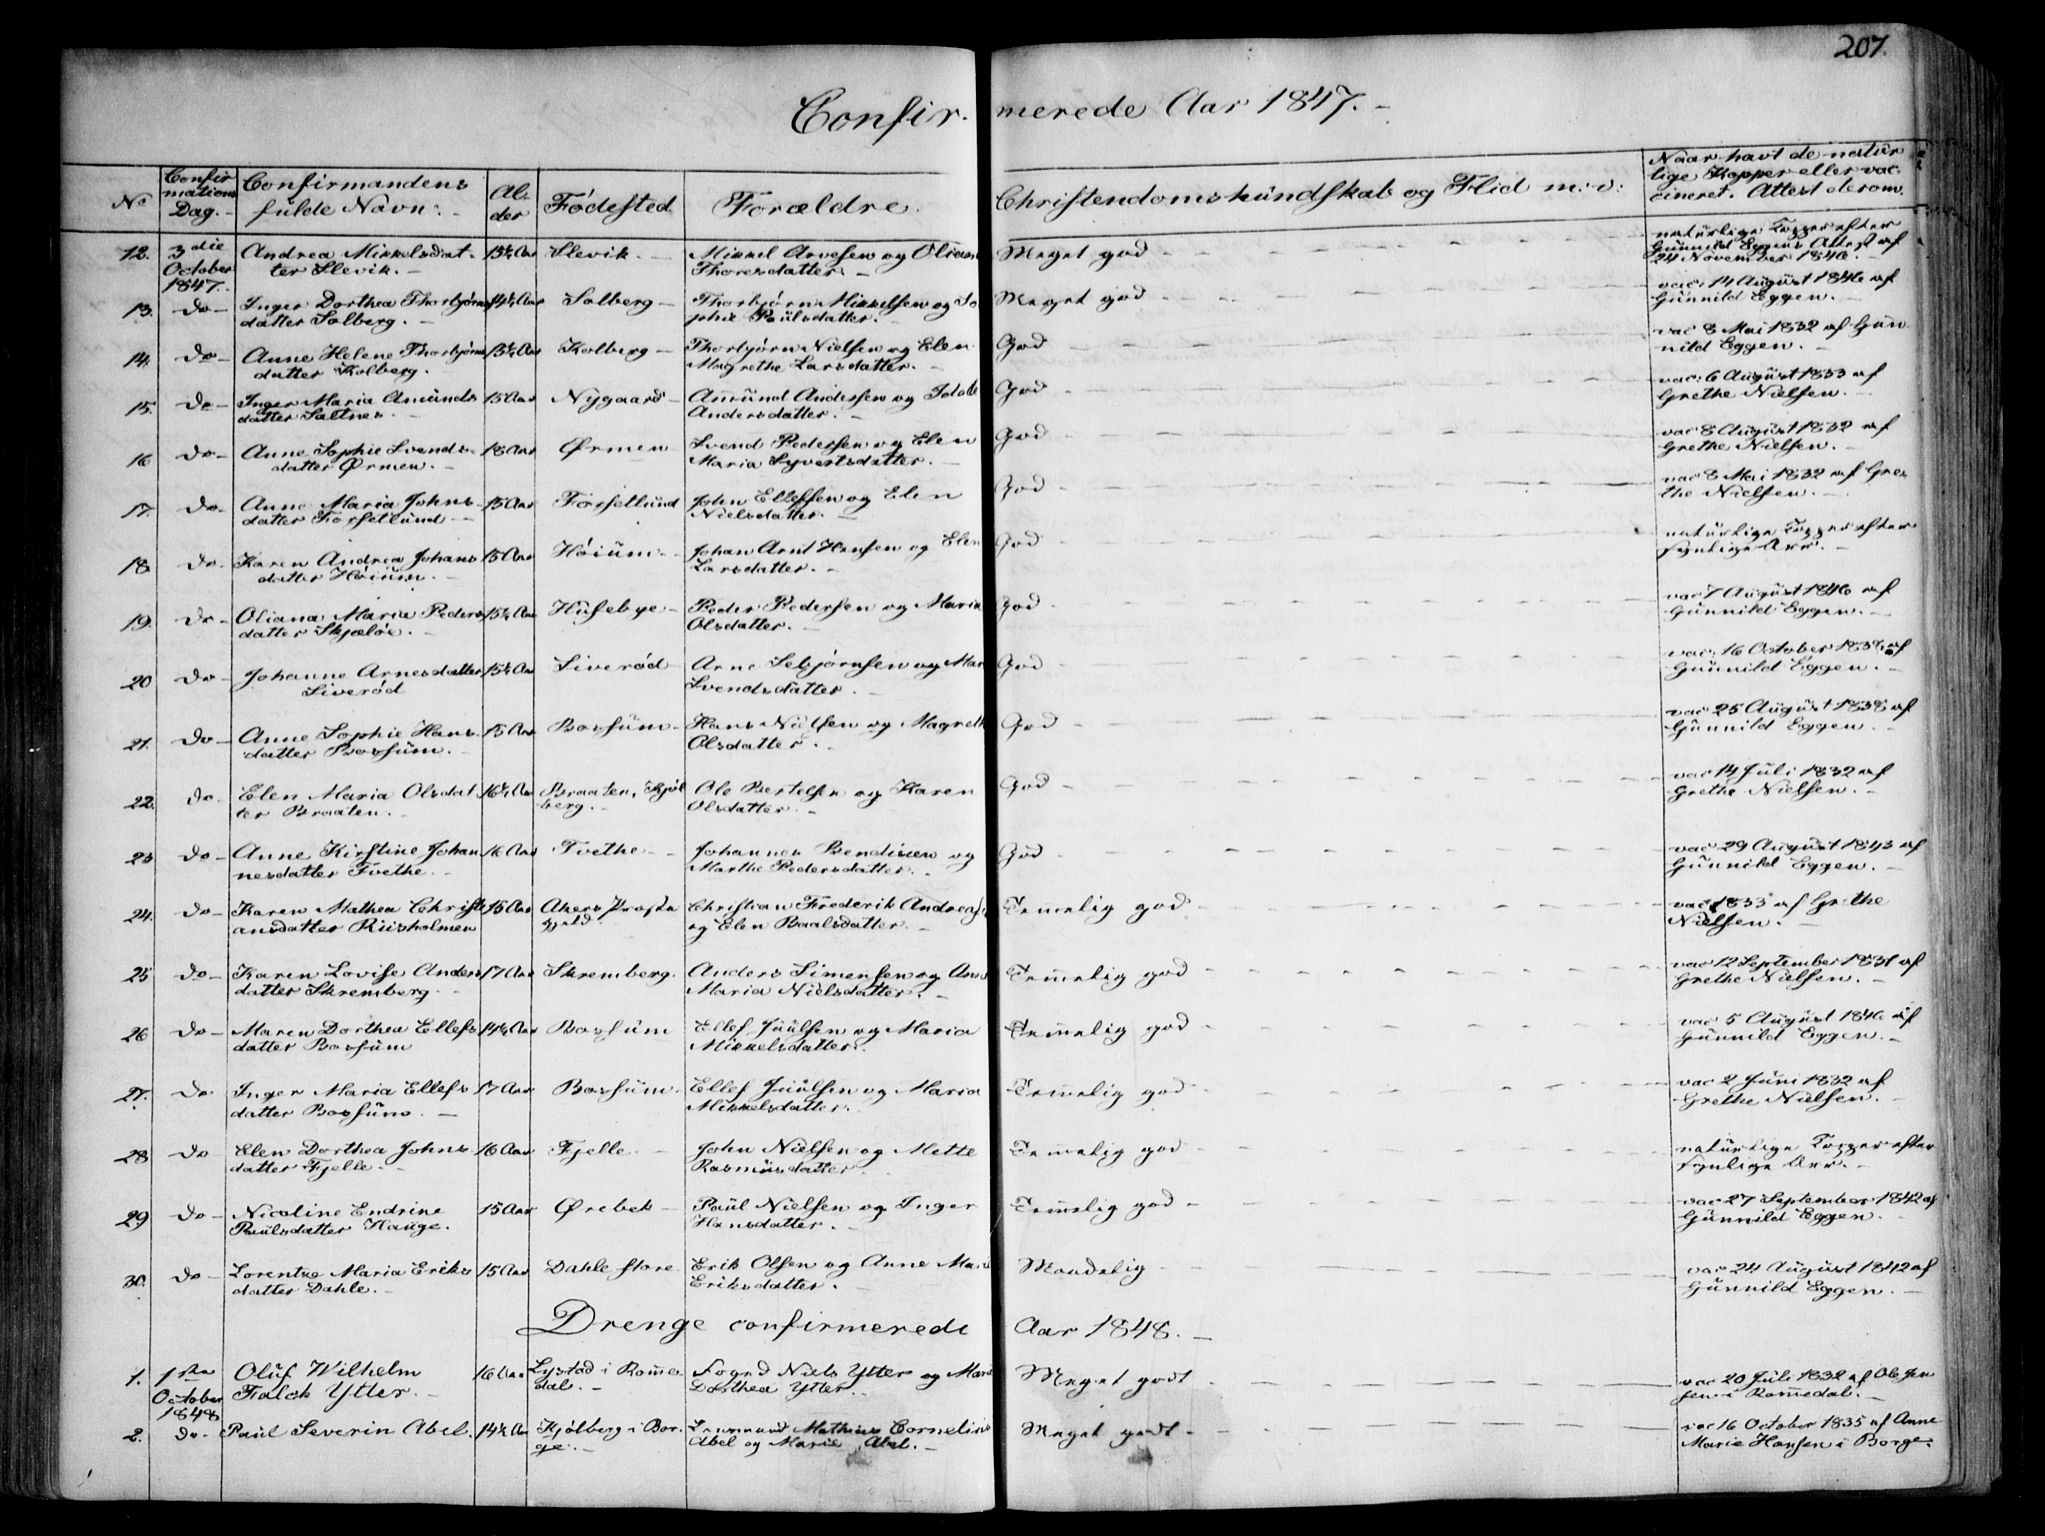 207.
Confir- merede Aar 1847.-
No
Confir
mations
Dag.-
Confirmandens
fulde Navn:-
Al-
der
Fødested
Forældre.
Christendomskundskab og Flid m: v:
Naar havt de natur
lige Kopper eller vac
cineret. Attest derom.
12. 3die
October
1847.
Andrea Mikkelsdat-
ter Slevik.-
15½ Aar
Slevik.-
Mikkel Arvesen og Oliane
Thoresdatter.-
Meget god
naturlige Kopper efter
Gunnild Eggens Attest af
24 November 1846.-
13. do-
Inger Dorthea Thorbjørns
datter Solberg.-
14½ Aar
Solberg-
Thorbjørn Mikkelsen og So
phie Paulsdatter.-
Meget god
vac: 14 August 1846 af
Gunnild Eggen.-
14. do-
Anne Helene Thorbjørns
datter Kolberg.
15½ Aar
Kolberg-
Thorbjørn Nielsen og Elen
Magrethe Larsdatter.-
God
vac 8 Mai 1832 af Gun
nild Eggen.-
15. do-
Inger Maria Amunds
datter Saltnes.-
15 Aar
Nygaard-
Amund Andersen og
Andersdatter.-
God
vac: 6 August 1833 af
Grethe Nielsen.-
16 do-
Anne Sophie Svends-
datter Ørmen.-
18 Aar
Ørmen
Svend Pedersen og Elen
Maria Syvertsdatter.-
God
vac 8 August 1832 af
Grethe Nielsen.-
17. do-
Anne Maria Johns
datter Forsetlund-
15 Aar
Forsetlund
John Ellefsen og Elen
Nielsdatter.-
God
vac 8 Mai 1832 af Gre
the Nielsen.-
18. do-
Karen Andrea Johans
datter Høium.-
15 Aar
Høium-
Johan Arnt Hansen og Elen
Larsdatter.-
God
naturlige Kopper efter
synlige Arr.-
19. do-
Oliana Maria Peders
datter Skjæløe.-
15½ Aar
Husebye-
Peder Pedersen og Maria
Olsdatter.-
God
vac 7 August 1846 af
Gunnild Eggen.-
20 do-
Johanne Arnesdatter
Siverød
15½ Aar
Siverød-
Arne Sebjørnsen og Mar
Svendsdatter.-
God
vac: 16 October 1838 af
Gunnild Eggen.-
21. do-
Anne Sophie Hans
datter Bossum.-
15 Aar
Bossum-
Hans Nielsen og Magreth
Olsdatter.-
God
vac 25 August 1838 af
Gunnild Eggen.-
22. do
Elen Maria Olsdat
ter Braaten.-
16½ Aar
Braaten, Kjøl
berg.-
Ole Bertelsen og Karen
Olsdatter.-
God
vac 14 Juli 1832 af
Grethe Nielsen.-
23 do-
Anne Kirstine Johan
nesdatter Tvethe.-
16 Aar
Tvethe-
Johannes Bendixen og
Marthe Pedersdatter.-
God
vac 29 August 1843 af
Gunnild Eggen.-
24. do-
Karen Mathea Christi
ansdatter Riisholmen
15 Aar
Akers Præste
gjeld.
Christian Frederik Andreas
og Elen Paalsdatter.-
Temmelig god
vac 1833 af Grethe
Nielsen.-
25 do-
Karen Lovise Anders
datter Skremberg.-
17 Aar
Skremberg.
Anders Simensen og Ane
Maria Nielsdatter.-
Temmelig god
vac 12 September 1831 af
Grethe Nielsen.-
26 do-
Maren Dorthea Ellefs
datter Bossum
14½ Aar
Bossum
Ellef Juulsen og Maria
Mikkelsdatter.
Temmelig god
vac 5 August 1846 af
Gunnild Eggen.-
27. do
Inger Maria Ellefs
datter Bossum.-
17 Aar
Bossum-
Ellef Juulsen og Maria
Mikkelsdatter.
Temmelig god
vac 2 Juni 1832 af
Grethe Nielsen.-
28 do
Elen Dorthea Johns
datter Fjelle.-
16 Aar
Fjelle.-
John Nielsen og Mette
Rasmusdatter.
Temmelig god
naturlige Kopper efter
synlige Arr.-
29 do-
Nicoline Endrine
Paulsdatter Hauge.
15 Aar
Ørebek-
Paul Nielsen og Inger
Hansdatter.-
Temmelig god
vac 27 September 1842 af
Gunnild Eggen.-
30. do-
Lorentze Maria Eriks
datter Dahle.-
15 Aar
Dahle store
Erik Olsen og Anne Mari
Eriksdatter.-
Maadelig
vac 24 August 1842 af
Gunnild Eggen.-
Drenge confirmerede Aar 1848.-
1. 1ste
October
1848
Oluf Wilhelm
Falck Ytter.-
16 Aar
Lystad i Romme
dal.-
Foged Niels Ytter og Mar
Dorthea Ytter.
Meget godt
vac 20 Juli 1832 af Ole Jen
sen i Rommedal.-
2. do-
Paul Severin Abel.
14½ Aar
Kjølberg i Bor-
ge.-
Lensmand Mathias Cornelius
Abel og Marie Abel.-
Meget godt
vac 16 October 1835 af Anne
Marie Hansen i Borge.